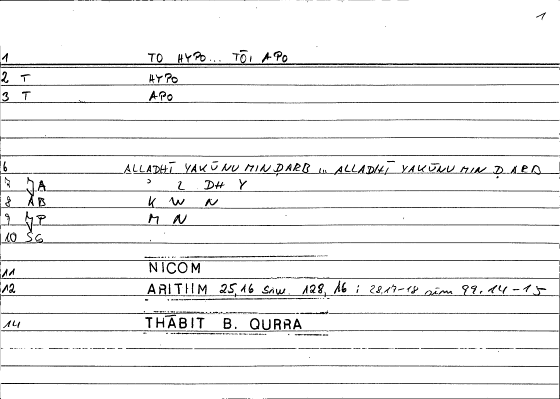 1
1 TO HYPO... TŌI APO
2 T HYPO
3 T APO
6 ALLADHĪ YAKŪNU MIN ḌARB ... ALLADHĪ YAKŪNU MIN ḌARB
7 A ʾ L DH Y
8 AB K W N
9 P M N
10 SG
11 NICOM
12 ARITHM 25,16 128, 16 : 28.17-18 99.14-15
14 THĀBIT B. QURRA